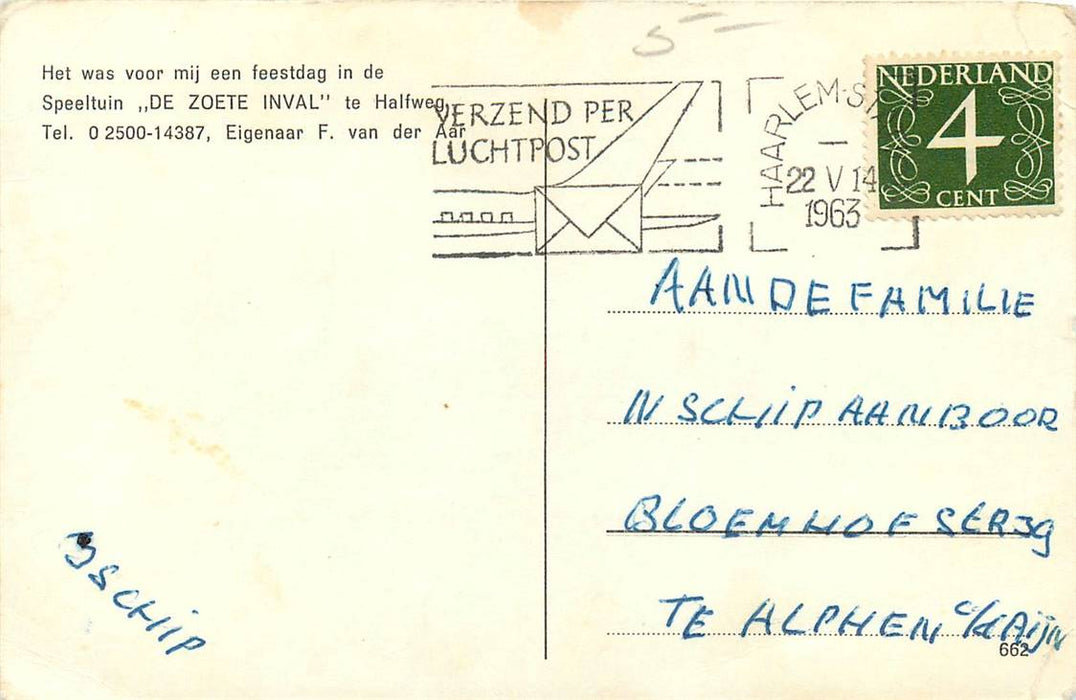 Het was voor mij een feestdag in de
Speeltuin „DE ZOETE INVAL" te Halfweg
Tel. 0 2500-14387, Eigenaar F. van der Aar
5-
VERZEND PER
LUCHTPOST
HAARLEM-ST
22 V 14
1963
NEDERLAND
4
CENT
AAN DE FAMILIE
SCHIP AAN BOOR
BLOEMHOF
TE ALPHEN
662
SCHIP